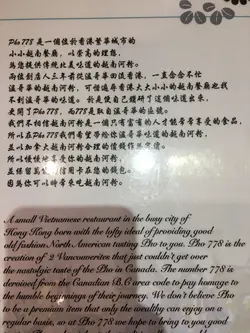 Pho 778 是一個位於香港繁華城市的
小小越南餐廳, 以崇高的理想,
為您提供傳統北美味道的越南河粉。
而在創店人三年前從溫哥華回流香港, 一直念念不忘
溫哥華的越南河粉, 可惜遍尋香港大大小小的越南河粉也找
不到溫哥華的味道。於是便自己鑽研了這個味道出來,
更開了Pho 778, 而778是取自溫哥華的區號。
我們不相信越南河粉是一個只有富有的人才能常常享受的食品,
所以在Pho 778我們希望帶給您溫哥華味道的越南河粉,
並以如拿大越南河粉合理的價錢作為定價。
所以慢慢地享受你的越南河粉,
並保留萬分的信用卡在您的錢包,
因為您可以時常來吃越南河粉。
A small Vietnamese restaurant in the busy city of
Hong Kong born with the lofty ideal of providing good
old fashion North American tasting Pho to you. Pho 778 is the
creation of 2 Vancouverites that just couldn't get over
the nastolgic taste of the Pho in Canada. The number 778 is
derived from the Canadian B.C area code to pay homage to
the humble beginnings of their journey. We don't believe Pho
to be a premium item that only the wealthy can enjoy on a
regular basis, so at Pho 778 we hope to bring to you good